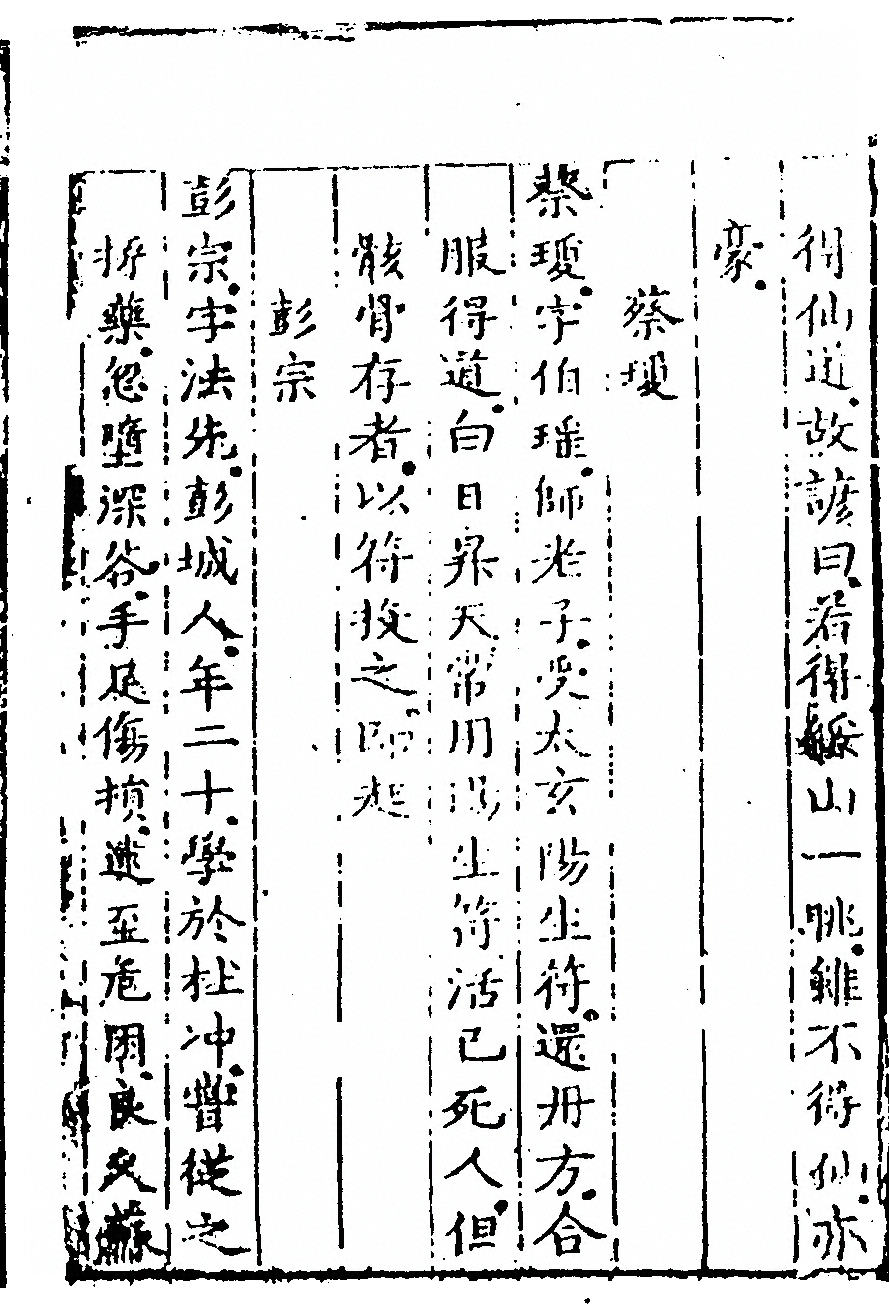 得仙道。故諺曰。若得綏山一桃。雖不得仙。亦
豪。
蔡瓊
蔡瓊。字伯瑤。師老子。受太玄陽生符。還丹方。合
服得道。白日昇天。常用陽生符活已死人。但
骸骨存者。以符投之即起
彭宗
彭宗。字法先。彭城人。年二十。學於杜冲。嘗從之
採藥。忽墮深谷。手足傷損。遂至危困。良久蘇